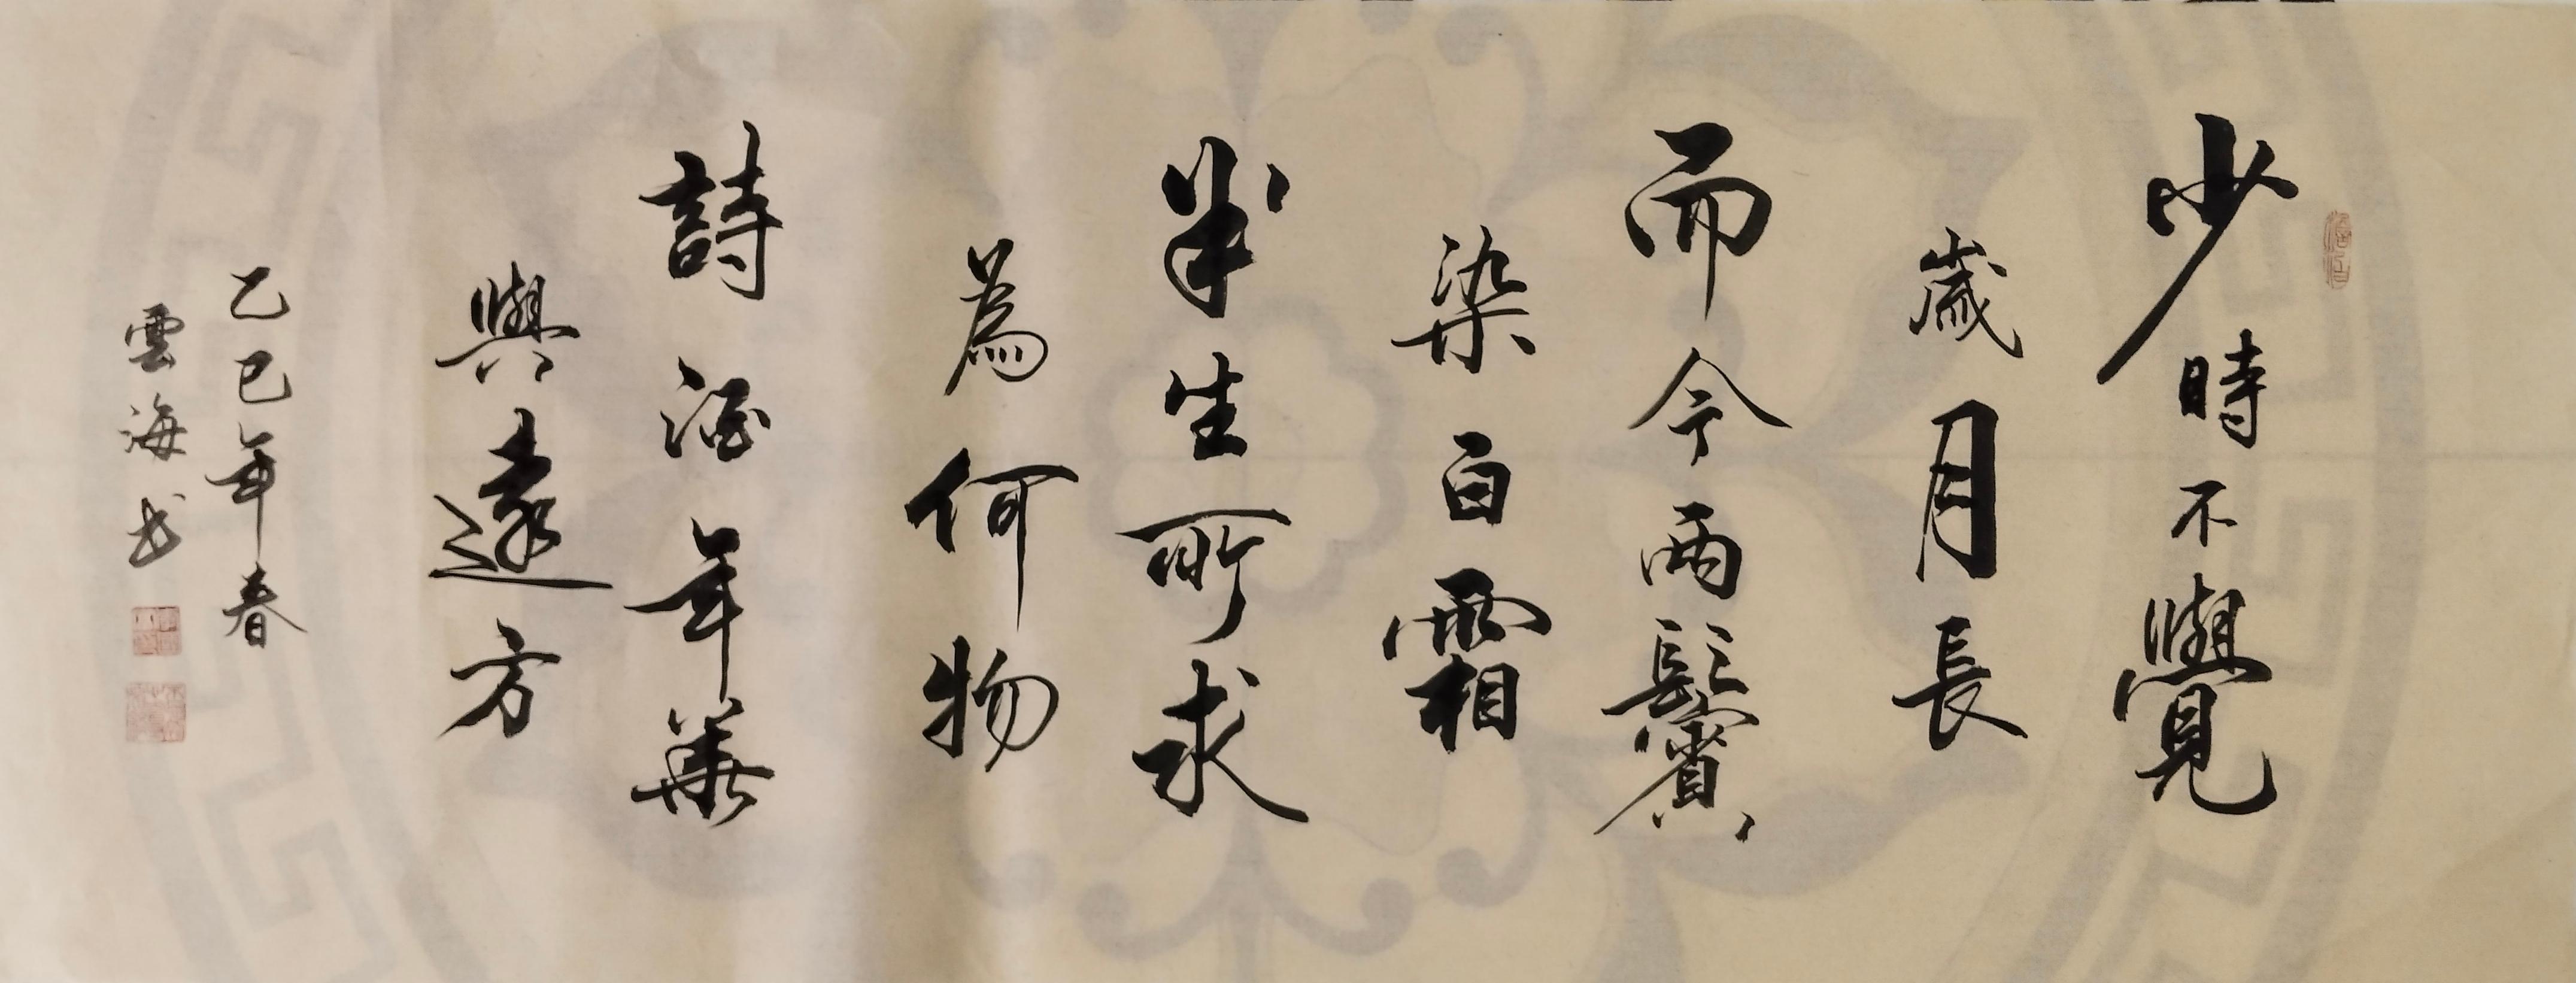 少時不覺
歲月長
而今兩鬢
染白霜
半生所求
為何物
詩酒年華
與遠方
乙巳年春
雲海书